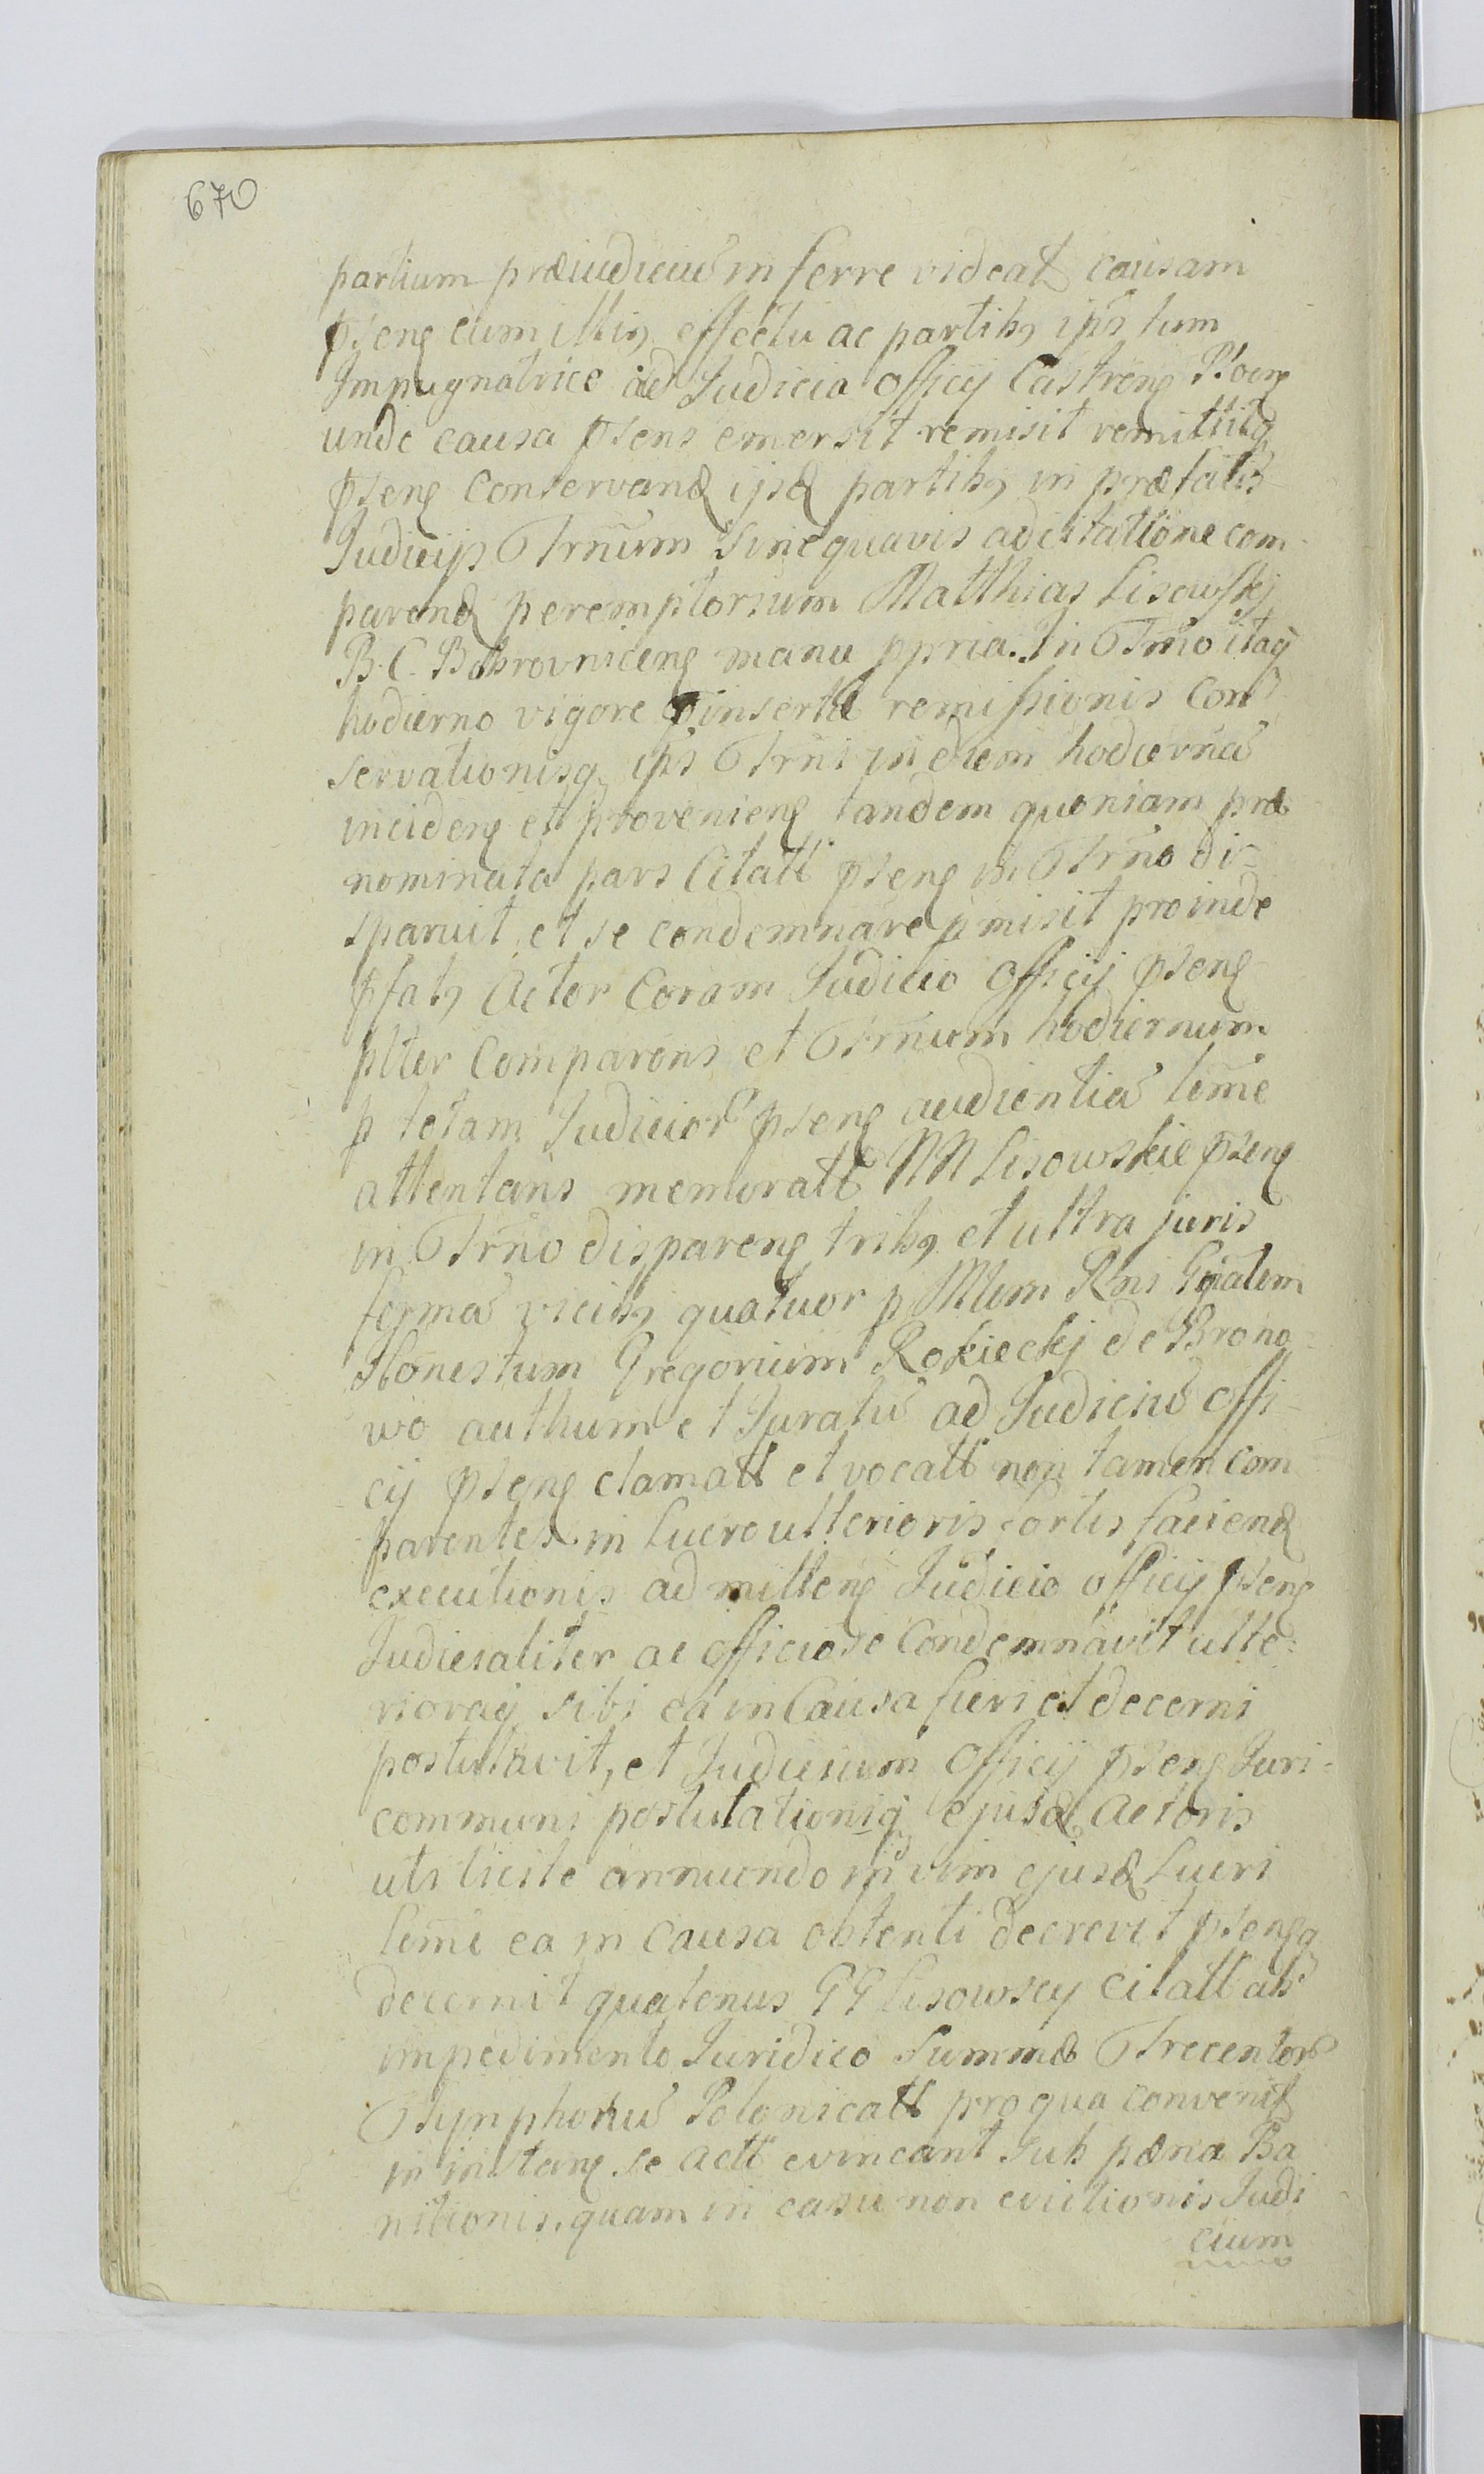 670
partium præiudiciū in ferre videat causam
pñseng cum illig effectu ac partibg ips tum
Impugnatrice ad Judicia Officij Castreng
unde causa pñsens emersit remisit remittitq
pñseng Conservand ijsd partibg in præfatis
Judicijs Trnum sine quavis adcitatione com
parend peremptorium Matthias Lisowskj
B. C. Bobrovniceng manu ppria. In Trno itaq
hodierno vigore pinsertæ remissionis Con
servationisq ips Trni in diem hodiernā
incideng et provenieng tandem quoniam præ
nominata pars Citatt pñseng in Trno di-
sparuit et se condemnare pmisit proinde
pfatg Actor Coram Judicio Officij pñseng
plter Comparens et Trnum hodiernum
p totam Judicior pñseng audientiā leme
attentans memoratt NN Lisowskie pñseng
in Trno dispareng tribg et ultra juris
formā vicibg quatuor p Mlem Rni Gñalem
Honestum Gregorium Rokieckj de Brono
wo authum et Juratū ad Judiciū Offi
cij pñseng clamatt et vocatt non tamen com
parentes in lucro ulterioris sortis faciend
executionis admitteng Judicio officij pñseng
Judicialiter ac officiose Condemnavit ulte-
rioraq sibi eā in Causa fieri et decerni
postulavit, et Judicium Officij pñseng Juri-
communi postulationiq ejusd Actoris
uti licite annuendo in vim ejusd Lucri
leme ea in Causa obtenti decrevit pñsengq
decernit quatenus GG Lisowscy Citatt ab
impedimento Juridico Summæ Trecentor
Tynphonū Polonicatt pro qua convenit
in instang se actt evincant sub pæna Ba
nitionis, quam in casu non evictionis Judi
cium